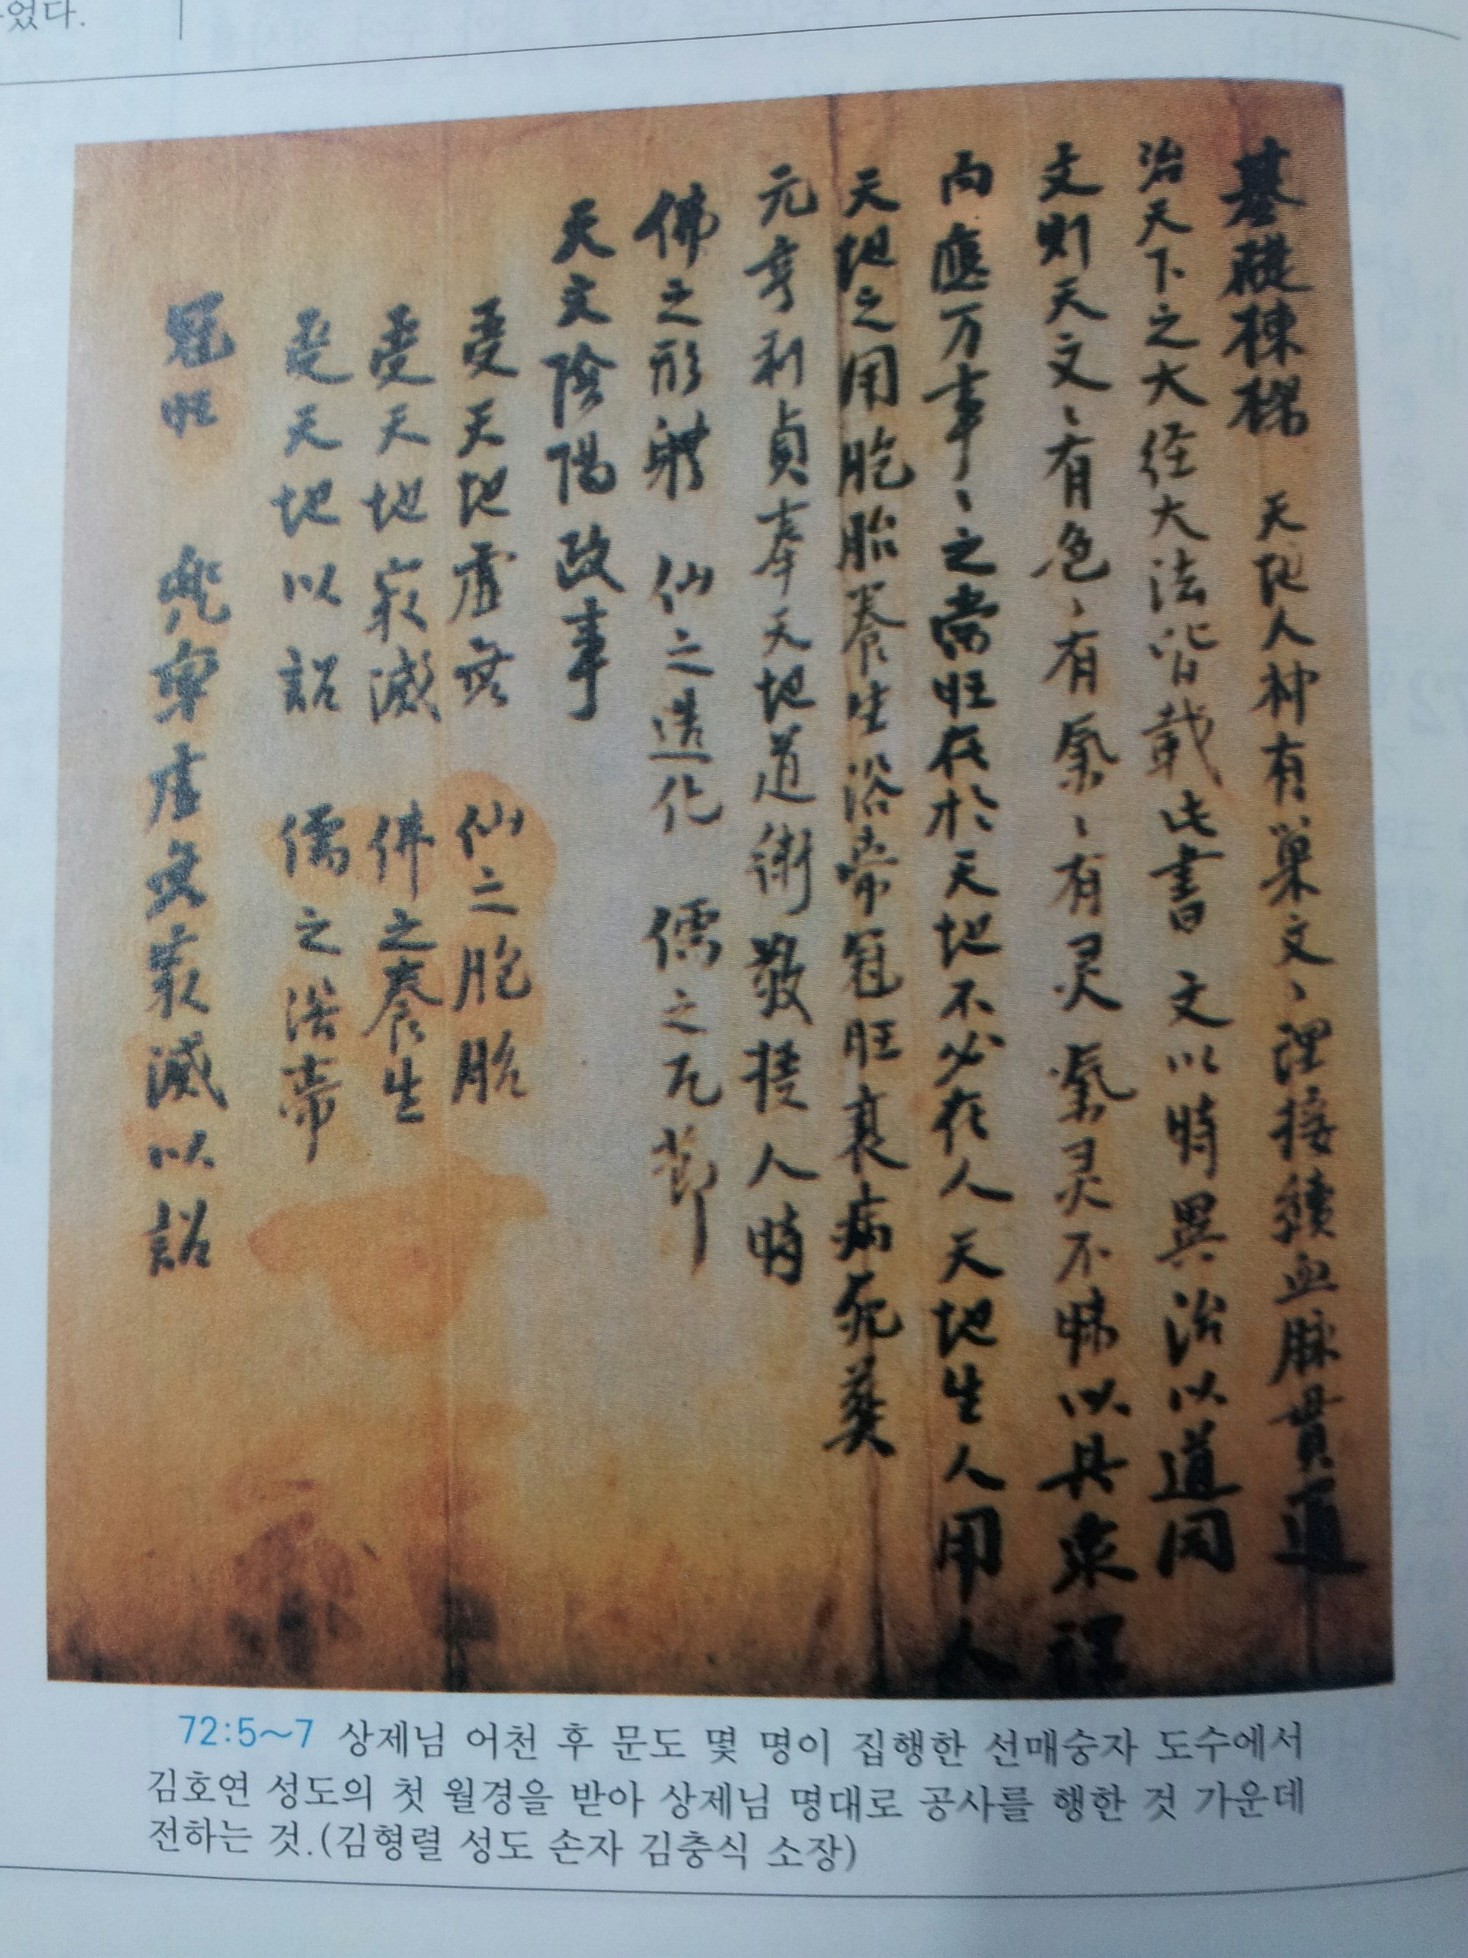 었다.
基礎棟樑 天地人神有巢文ヽ理接續血脉貫通
治天下之大経大法皆載此書 文以時異治以道同
文則天文ヽ有色ヽ有氣ヽ有灵 氣灵不昧以具衆理
而應万事ヽ之當旺在於天地不必在人 天地生人用人
天地之用胞胎養生浴帶冠旺衰病死葬
元亨利貞奉天地道術敬授人時
佛之形體 仙之造化 儒之凡節
天文陰陽政事
受天地虛無 仙之胞胎
受天地寂滅 佛之養生
受天地以詔 儒之浴帶
冠旺 兜率虛無寂滅以詔
72:5~7 상제님 어천 후 문도 몇 명이 집행한 선매숭자 도수에서
김호연 성도의 첫 월경을 받아 상제님 명대로 공사를 행한 것 가운데
전하는 것.(김형렬 성도 손자 김충식 소장)